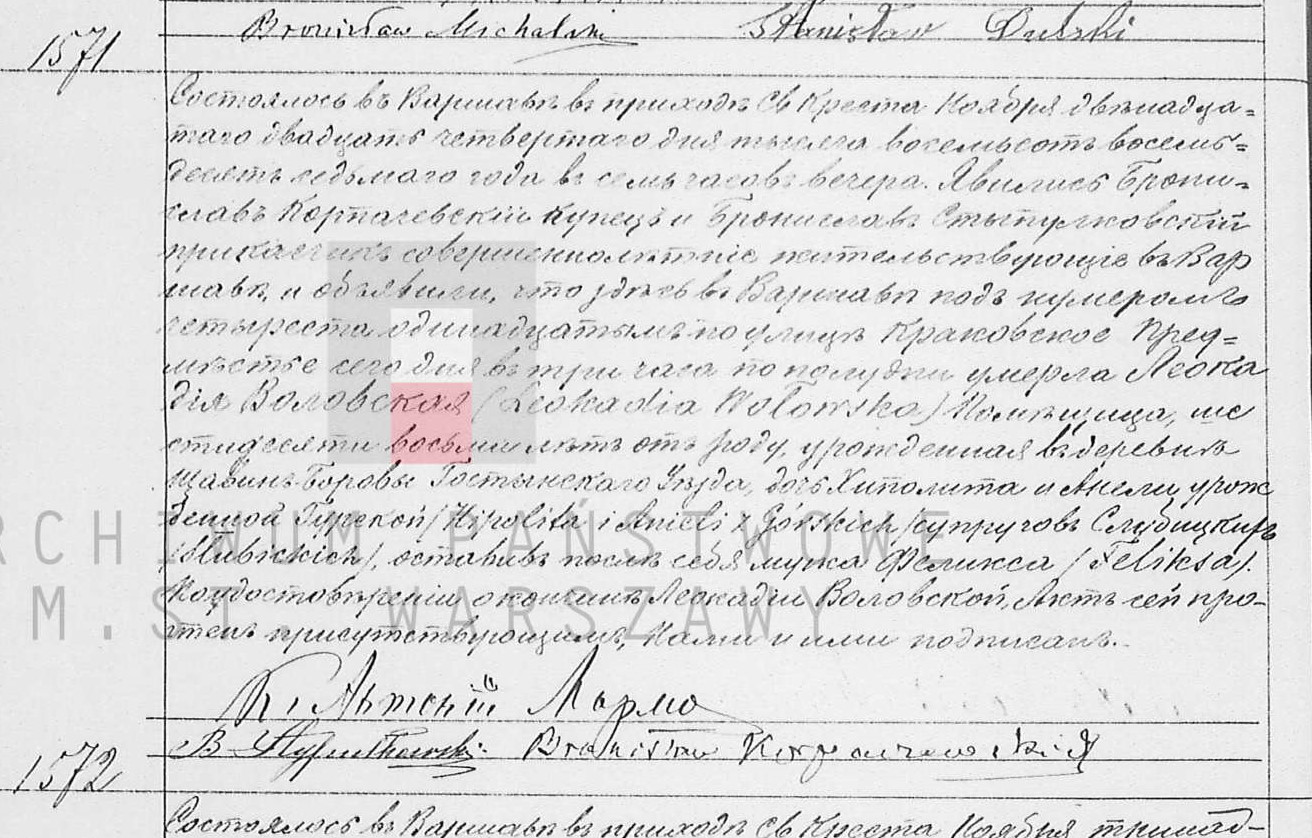 1571
Bronisław Michalski Stanisław Dulski
Состоялось въ Варшавѣ въ приходѣ Св Креста Ноября двѣнадца=
таго двадцать четвертаго дня тысяча восемьсотъ восемь=
десятъ седьмаго года въ семь часовъ вечера. Явились Брони=
славъ Корпачевскій купецъ и Брониславъ Стыпулковскій
прикащикъ совершеннолѣтніе жительствующіе въ Вар
шавѣ, и объявили, что здѣсь въ Варшавѣ подъ нумеромъ
четыреста одинадцатымъ по улицѣ Краковское Пред=
мѣстье сего дня въ три часа по полудни умерла Леока
дія Воловская (Leokadia Wołowska) Помѣщица, ше
стидесяти восьми лѣтъ отъ роду, урожденная въ деревнѣ
Щавинъ-Боровы Гостынскаго Уѣзда, дочь Хиполита и Анели урож
денной Гурской /Hipolita i Anieli z Górskich/ супруговъ Слубицкихъ
/Słubickich/, оставивъ послѣ себя мужа Феликса /Feliksa/.
По удостовѣреніи о кончинѣ Леокадіи Воловской, Актъ сей про-
чтенъ присутствующимъ, Нами и ими подписанъ.
ARCHIWUM PAŃSTWOWE
M.ST. WARSZAWY
B Stypułkowski Bronisław
1572
Состоялось въ Варшавѣ въ приходѣ Св Креста Ноября